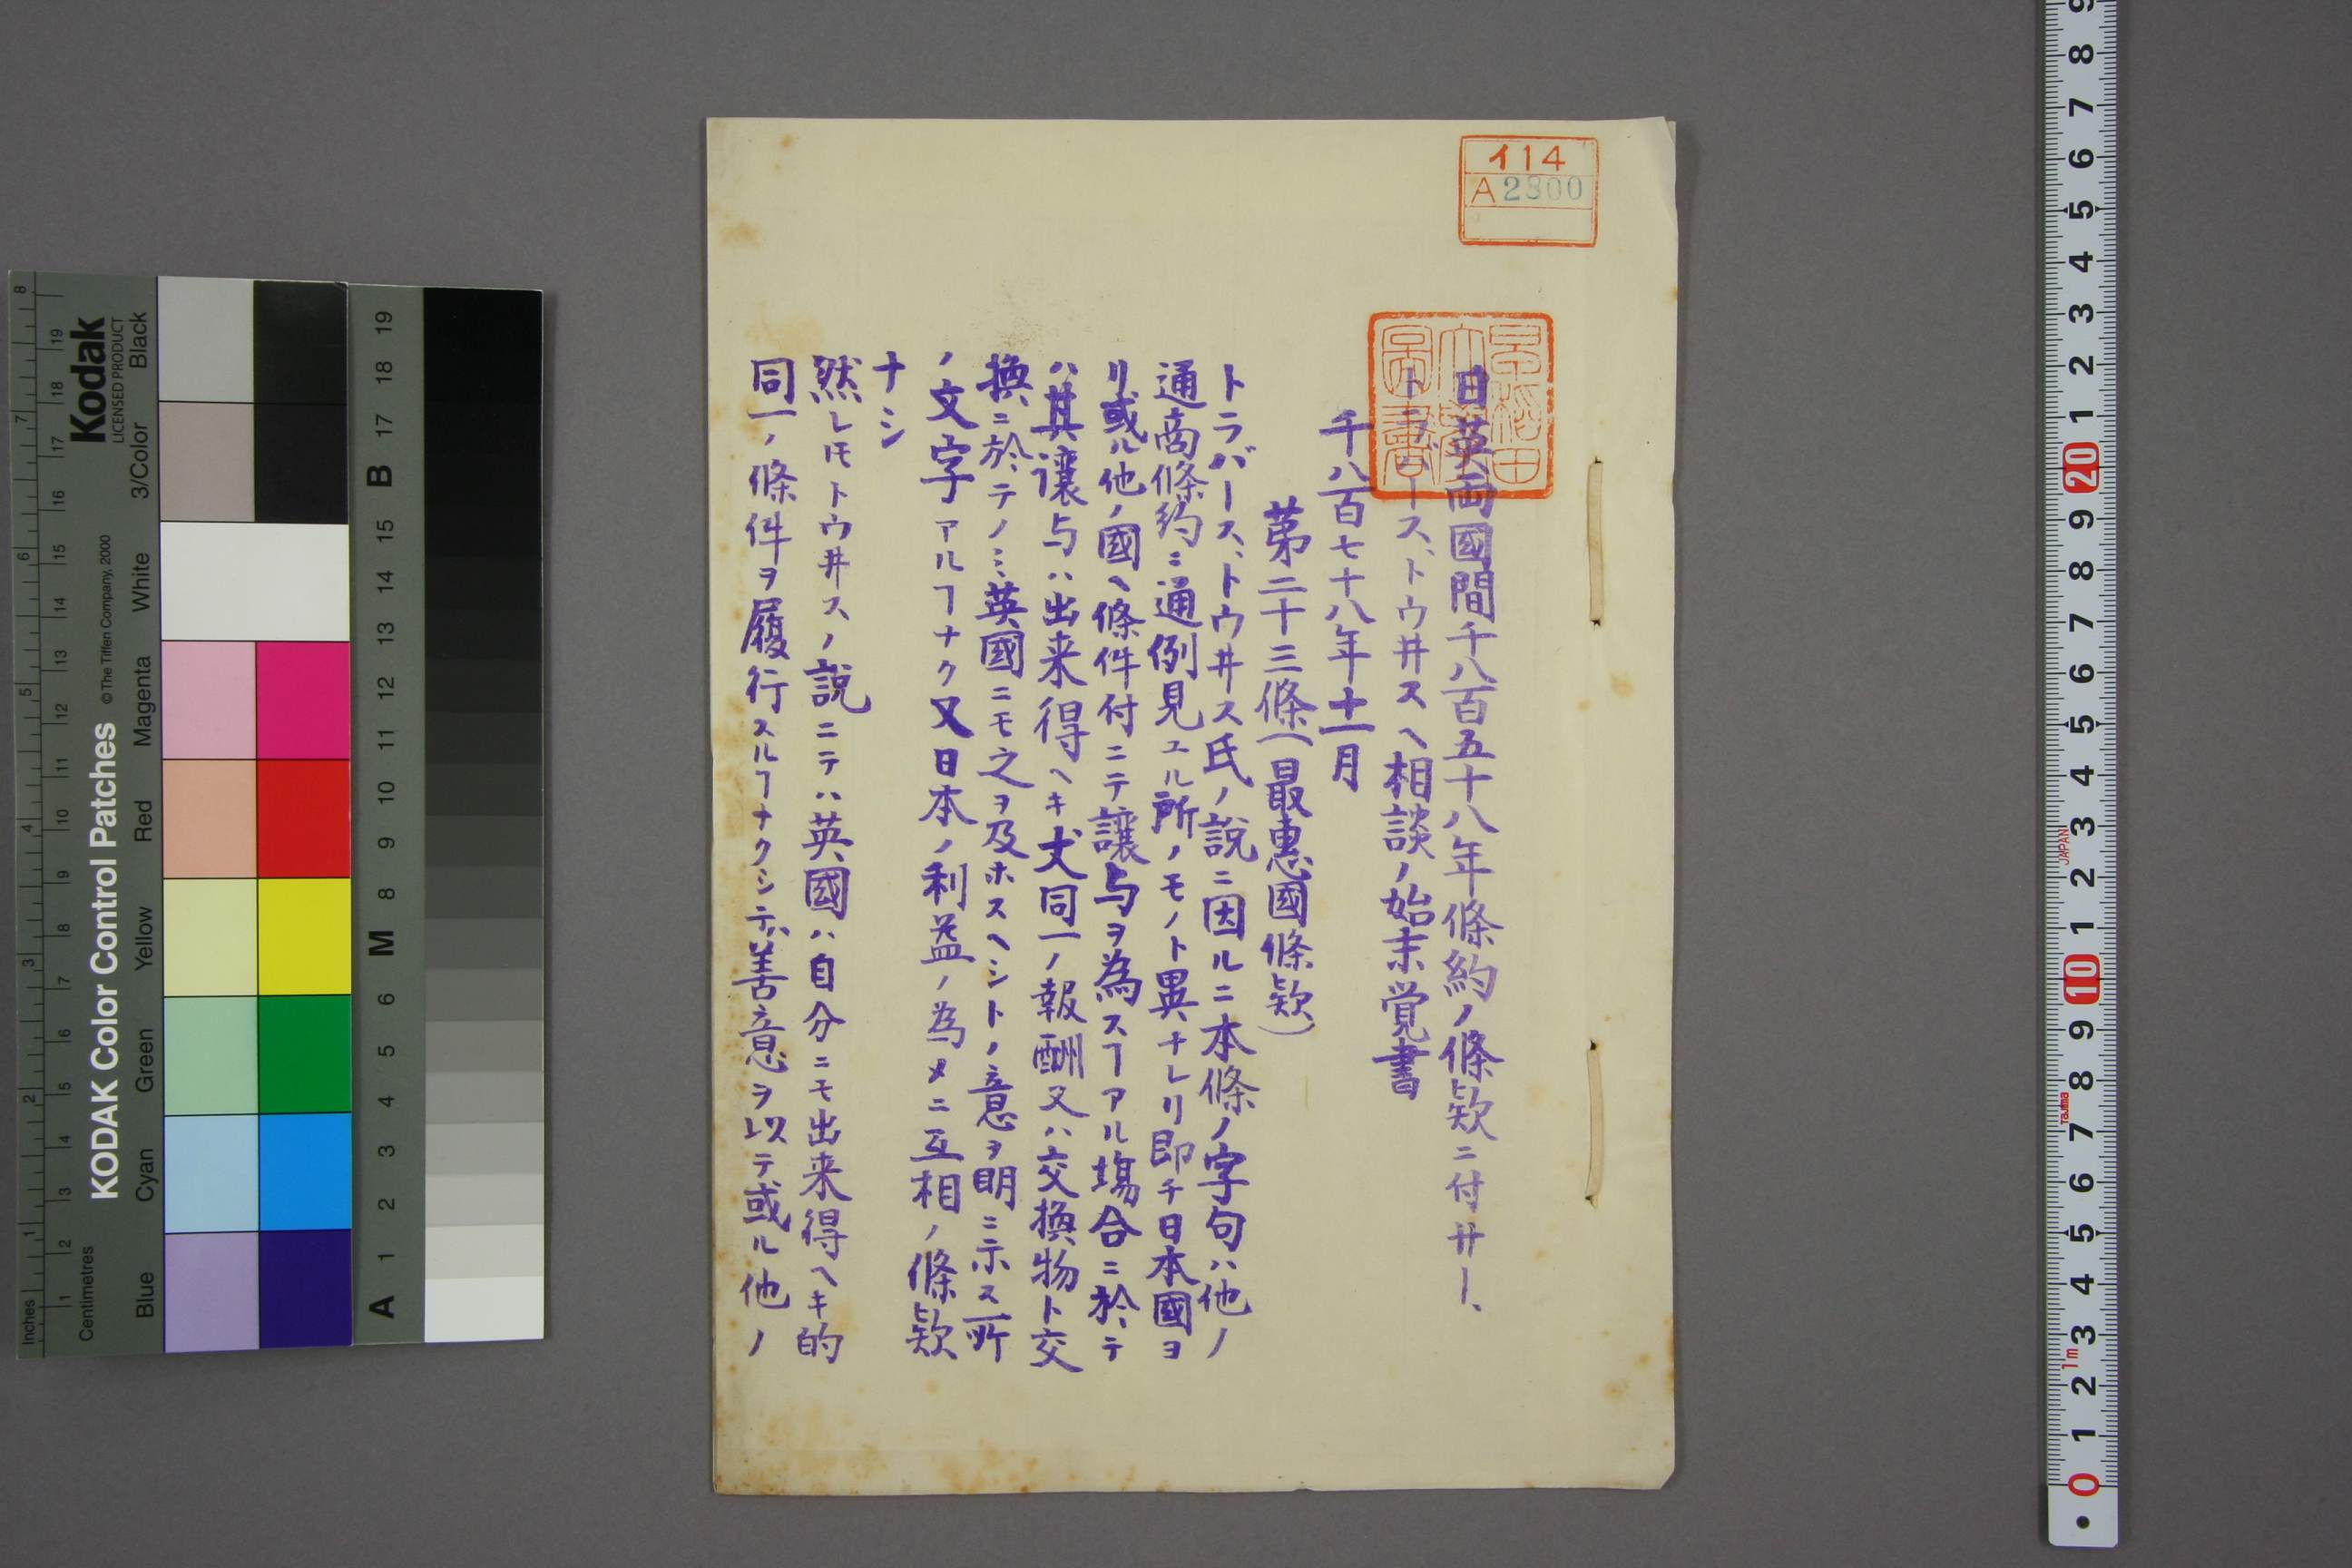 イ14
A2300
早稲田大學圖書
日英両國間千八百五十八年條約ノ條欵ニ付サー、
トラバース、トウ井スヘ相談ノ始末覚書
千八百七十八年十一月
第二十三條(最惠國條欵)
トラバース、トウ井ス氏ノ說ニ因ルニ本條ノ字句ハ他ノ
通商條約ニ通例見ユル所ノモノト異ナレリ即チ日本國ヨ
リ或ル他ノ國ヘ條件付ニテ讓与ヲ為スヿアル塲合ニ於テ
ハ其讓与ハ出来得ヘキ丈同一ノ報酬又ハ交換物ト交
換ニ於テノミ英國ニモ之ヲ及ホスヘシトノ意ヲ明ニ示ス所
ノ文字アルヿナク又日本ノ利益ノ為メニ互相ノ條欵
ナシ
然レ𪜈トウ井スノ說ニテハ英國ハ自分ニモ出来得ヘキ的
同一ノ條件ヲ履行スルヿナクシテ善意ヲ以テ或ル他ノ
KODAK Color Control Patches
© The Tiffen Company, 2000
Kodak
LICENSED PRODUCT
Inches
Centimetres
Blue
Cyan
Green
Yellow
Red
Magenta
White
3/Color
Black
A 1 2 3 4 5 6 M 8 9 10 11 12 13 14 15 B 17 18 19
JAPAN
Tajima
1m